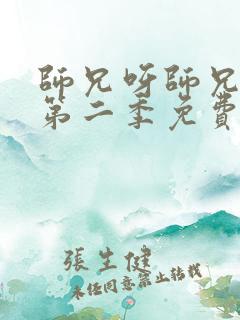 師兄呀師兄
第二季免費
張生健
未經同意禁止轉載